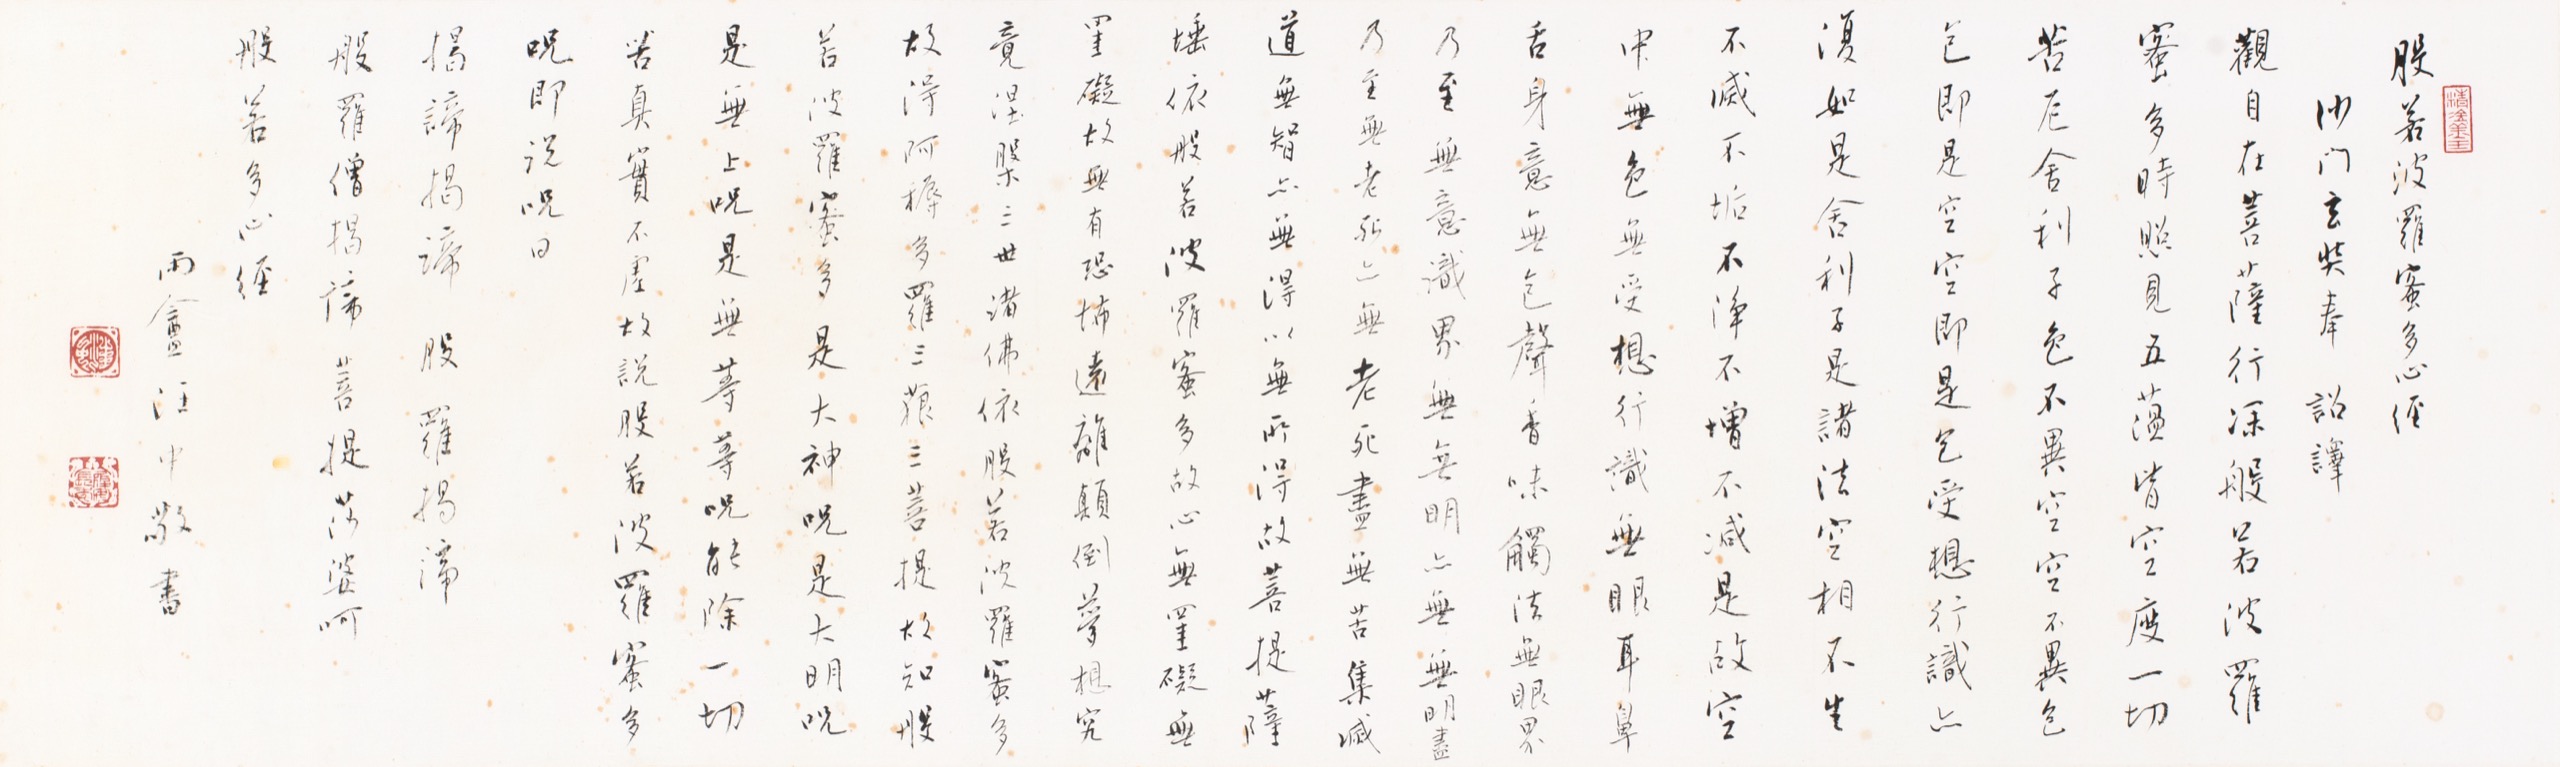 般若波羅蜜多心經
沙門玄奘奉 詔譯
觀自在菩薩行深般若波羅
蜜多時照見五蘊皆空度一切
苦厄舍利子色不異空空不異色
色即是空空即是色受想行識亦
復如是舍利子是諸法空相不生
不滅不垢不淨不增不減是故空
中無色無受想行識無眼耳鼻
舌身意無色聲香味觸法無眼界
乃至無意識界無無明亦無無明盡
乃至無老死亦無老死盡無苦集滅
道無智亦無得以無所得故菩提薩
埵依般若波羅蜜多故心無罣礙無
罣礙故無有恐怖遠離顛倒夢想究
竟涅槃三世諸佛依般若波羅蜜多
故得阿耨多羅三藐三菩提故知般
若波羅蜜多是大神呪是大明呪
是無上呪是無等等呪能除一切
苦真實不虛故說般若波羅蜜多
呪即說呪曰
揭諦揭諦 般羅揭諦
般羅僧揭諦 菩提莎婆呵
般若多心經
雨盦汪中敬書